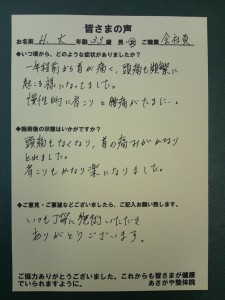 皆さまの声
お名前 H.大 年齢 33 歳 男・女 ご職業 会社員
◆いつ頃から、どのような症状がありましたか？
一年程前から首が痛く、頭痛も頻繁に
起こる様になってました。
慢性的に肩こりと腰痛がたまに・・
◆施術後の状態はいかがですか？
頭痛もなくなり、首の痛みがかなり
とれました。
肩こりもかなり楽になりました。
◆ご意見・ご要望などございましたら、ご記入お願い致します。
いつも丁寧に施術いただき
ありがとうございます。
ご協力ありがとうございました。これからも皆さまが健康
でいられますように。 あさがや整体院